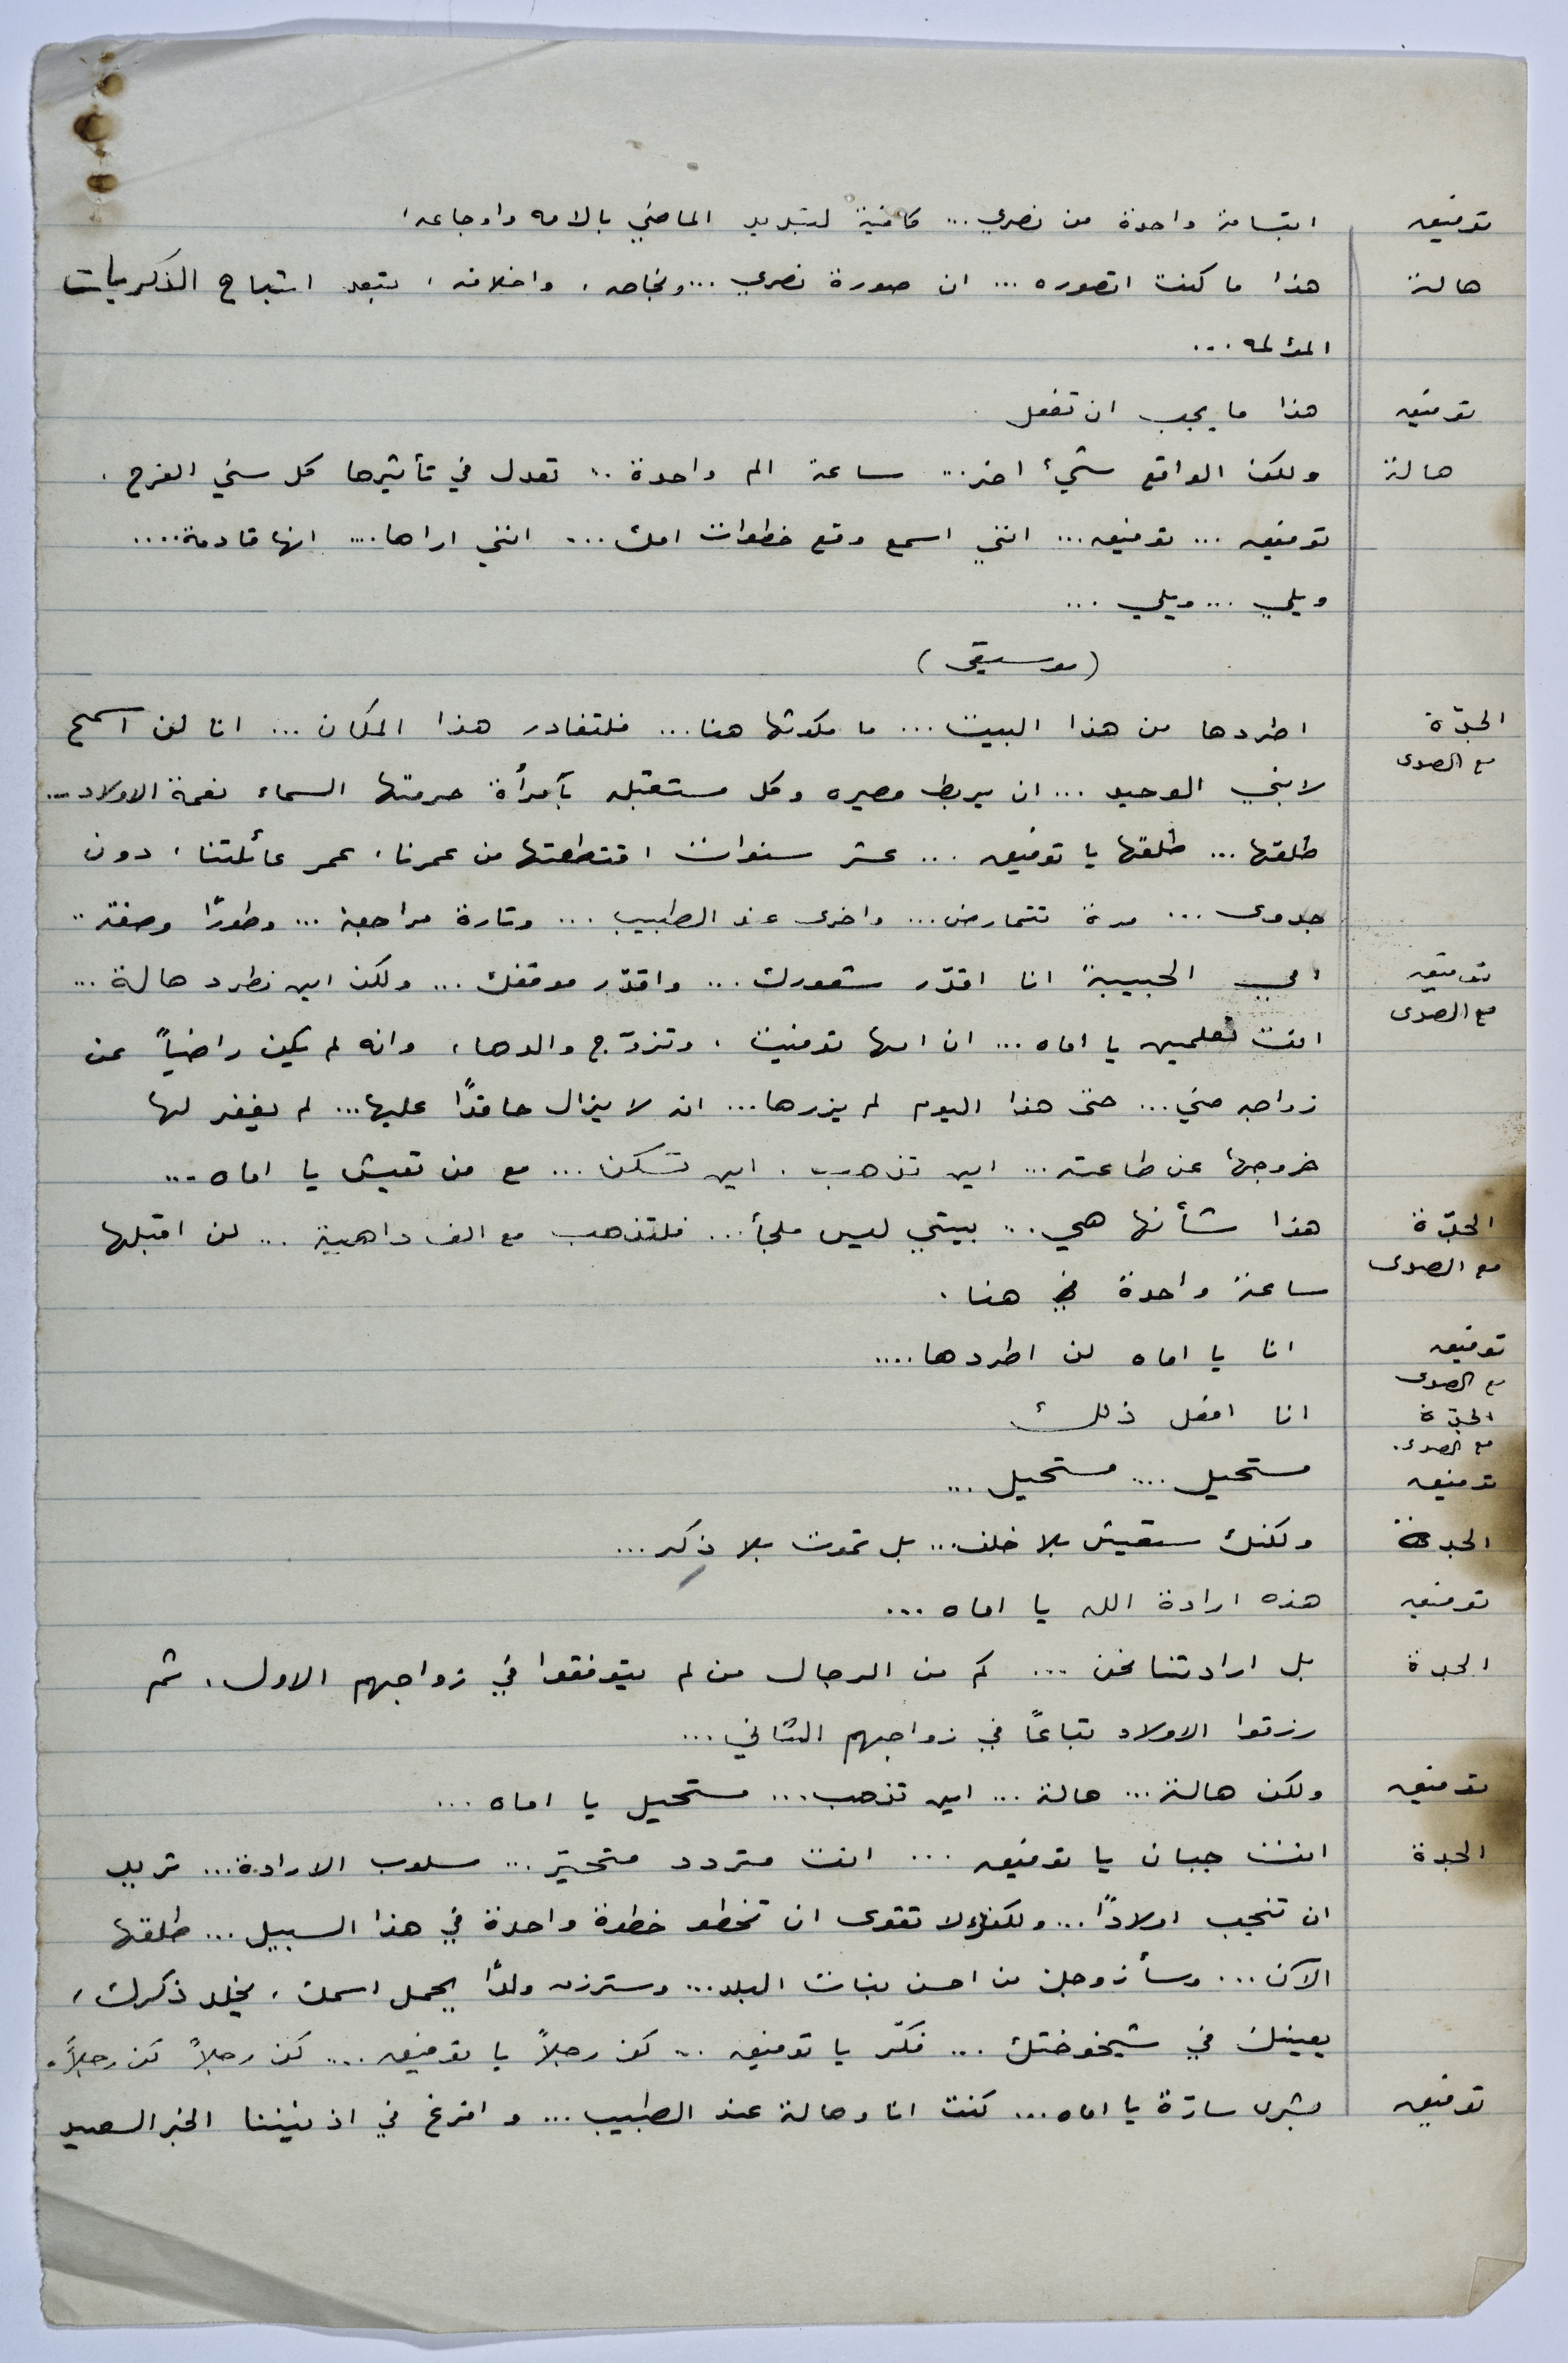 توفيق ابتسامة واحدة من نصري ... كافية لتبديد الماضي بالامه واوجاعه ،
هالة هذا ما كنت اتصوره ... ان صورة نصري ... ونجاحه ، واخلاقه ، تبعد اشباح الذكريات
المؤلمه ...
توفيق هذا ما يجب ان تفعل
هالة ولكن الواقع شيء اخر ... ساعة الم واحدة .. تعدل في تأثيرها كل سني الفرح .
توفيق ... توفيق ... انني اسمع وقع خطوات امك ... انني اراها .... انها قادمة ....
ويلي ... ويلي ...
(موسيقى)
الجدّة اطردها من هذا البيت ... ما مكوثها هنا ... فلتغادر هذا المكان ... انا لن اسمح
مع الصدى
لابني الوحيد ... ان يربط مصيره وكل مستقبله بآمرأة حرمتها السماء نعمة الاولاد ...
طلقها ... طلقها يا توفيق ... عشر سنوات اقتطعتها من عمرنا ، عمر عائلتنا ، دون
جدوى ... مرة تتمارض ... واخرى عند الطبيب ... وتارة مراجعة ... وطورًا وصفة ..
توفيق امي الحبيبة انا اقدّر شعورك ... واقدّر موقفك ... ولكن اين نطرد هالة ...
مع الصدى
انت تعلمين يا اماه ... ان امها توفيت ، وتزوّج والدها ، وانه لم يكن راضياً عن
زواجه مني ... حتى هذا اليوم لم يزرها ... انه لا يزال حاقدًا عليها ... لم يغفر لها
خروجها عن طاعته ... اين تذهب . اين تسكن ... مع من تعيش يا اماه ...
الجدّة هذا شأنها هي ... بيتي ليس ملجأ ... فلتذهب مع الف داهية ... لن اقبلها
مع الصدى
ساعة واحدة هنا .
توفيق انا يا اماه لن اطردها ....
مع الصدى
الجدّة انا افعل ذلك
مع الصدى .
توفيق مستحيل .... مستحيل ...
الجدة ولكنك ستعيش بلا خلف ... بل تموت بلا ذِكر ...
توفيق هذه ارادة الله يا اماه ...
الجدة بل ارادتنا نحن ... كم من الرجال من لم يتوفقوا في زواجهم الاول ، ثم
رزقوا الاولاد تباعًا في زواجهم الثاني ...
توفيق ولكن هالة ... هالة ... اين تذهب ... مستحيل يا اماه ...
الجدة انت جبان يا توفيق ... انت متردد متحيّر ... مسلوب الارادة ... تريد
ان تنجب اولادًا ... ولكنك لا تقوى ان تخطو خطوة واحدة في هذا السبيل ... طلقها
الآن ... وسأزوجك من احسن بنات البلد ... وسترزق ولدًا يحمل اسمك ، يخلد ذكرك ،
يعينك في شيخوختك ... فكّر يا توفيق ... كن رجلاً يا توفيق ... كن رجلاً كن رجلاً .
توفيق بشرى سارّة يا اماه ... كنت انا وهالة عند الطبيب ... وافرغ في اذنيننا الخبر السعيد